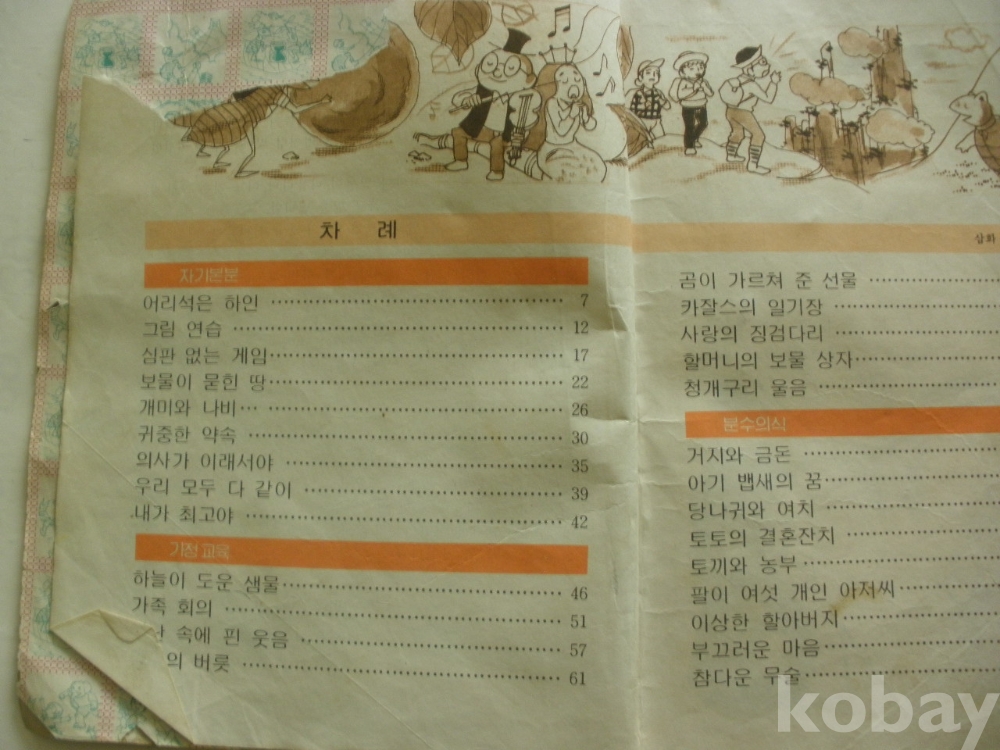 차 례
자기본분
어리석은 하인 ························ 7
그림 연습 ························ 12
심판 없는 게임 ························ 17
보물이 묻힌 땅 ························ 22
개미와 나비··· ························ 26
귀중한 약속 ························ 30
의사가 이래서야 ························ 35
우리 모두 다 같이 ························ 39
내가 최고야 ························ 42
가정교육
하늘이 도운 샘물 ························ 46
가족 회의 ························ 51
속에 핀 웃음 ························ 57
의 버릇 ························ 61
삽화
곰이 가르쳐 준 선물 ············
카잘스의 일기장 ············
사랑의 징검다리 ············
할머니의 보물 상자 ············
청개구리 울음 ············
분수의식
거지와 금돈 ············
아기 뱁새의 꿈 ············
당나귀와 여치 ············
토토의 결혼잔치 ············
토끼와 농부 ············
팔이 여섯 개인 아저씨 ············
이상한 할아버지 ············
부끄러운 마음 ············
참다운 무술 ············
kobay